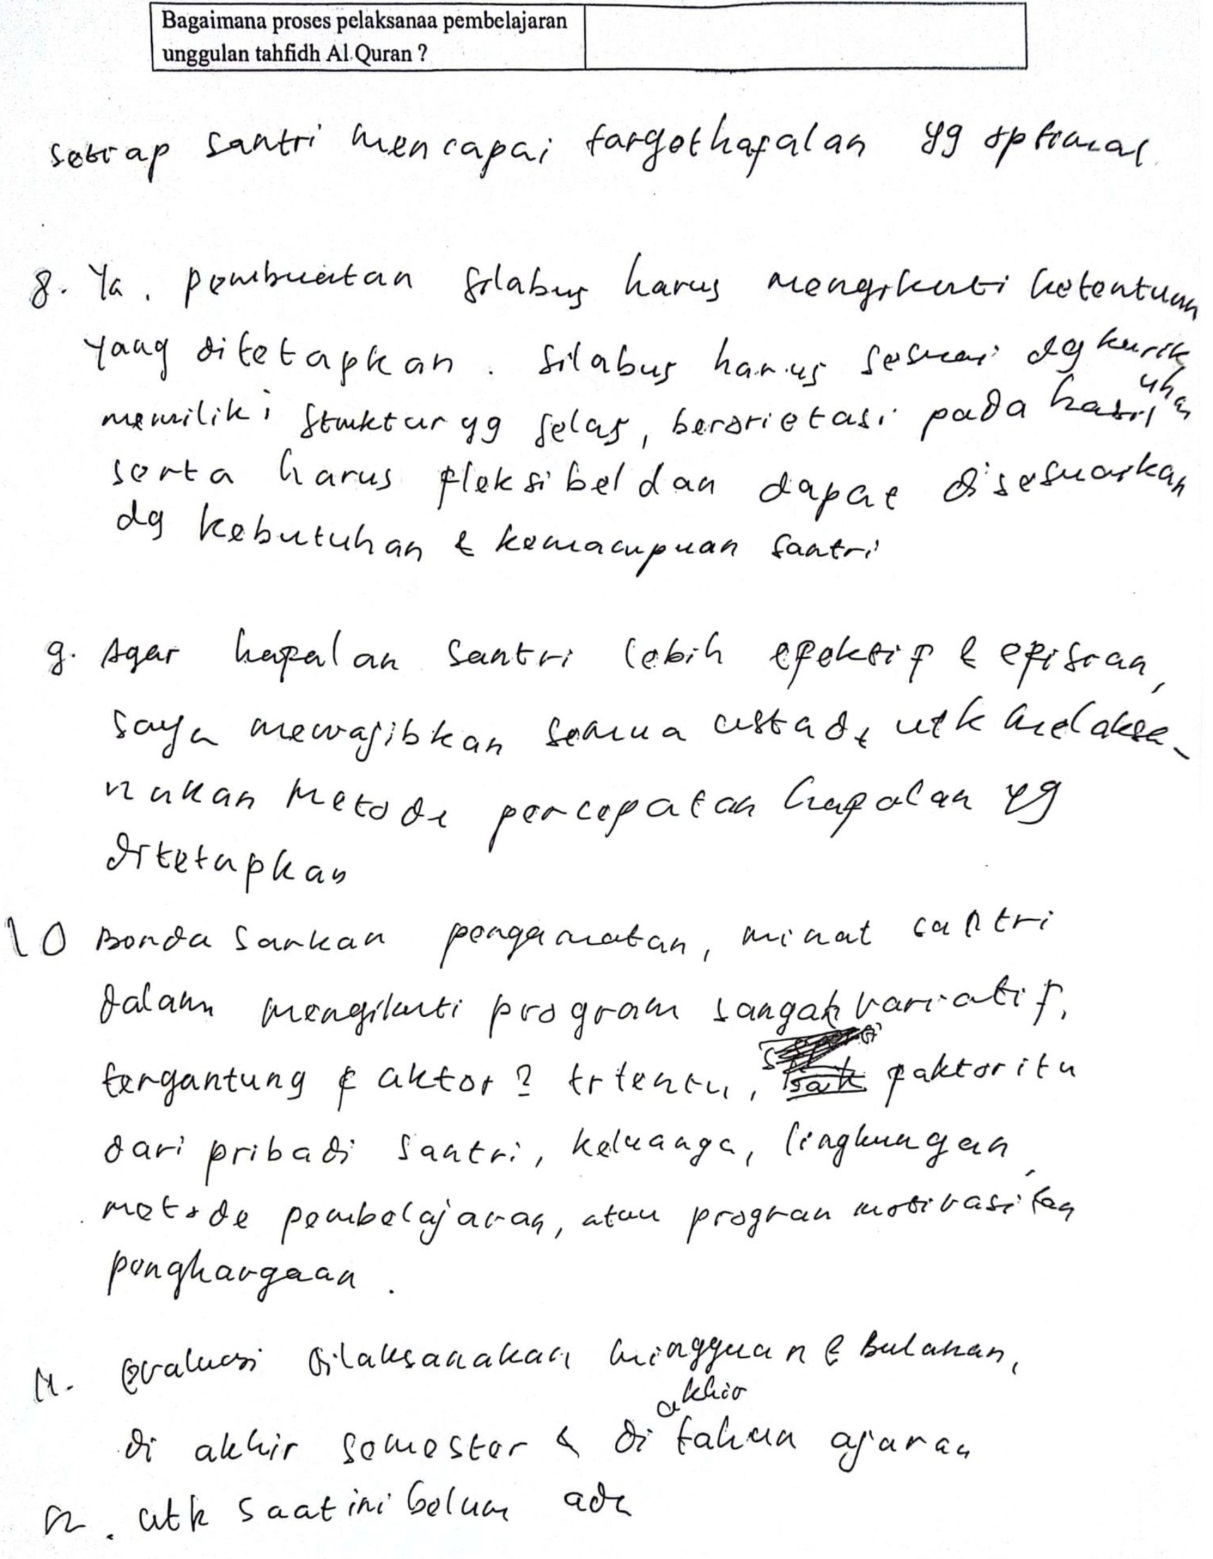 Bagaimana proses pelaksanaa pembelajaran
unggulan tahfidh Al Quran ?
setiap santri mencapai target hafalan yg optimal.
8. Ya, pembuatan silabus harus mengikuti ketentuan
yang ditetapkan. Silabus harus sesuai dg kurik
ulum
memiliki struktur yg jelas, berorietasi pada hasil
serta harus fleksibel dan dapat disesuaikan
dg kebutuhan & kemampuan santri
9. Agar hafalan santri lebih efektif & efisian,
saya mewajibkan semua ustadz utk melaksa-
nakan metode percepatan hafalan yg
ditetapkan
10 Berdasarkan pengamatan, minat santri
dalam mengikuti program sangat variatif,
tergantung faktor2 trtentu, faktor itu
dari pribadi santri, keluarga, lingkungan,
metode pembelajaran, atau program motivasi dan
penghargaan.
11. Evaluasi dilaksanakan mingguan & bulanan,
di akhir semester & di akhir tahun ajaran
12. utk saat ini belum ada